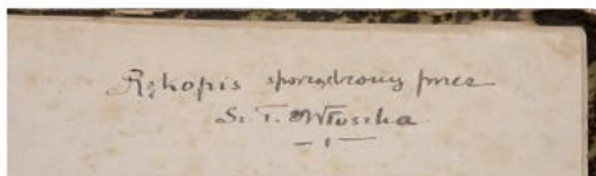 Rękopis sporządzony przez
S. T. Włoszka